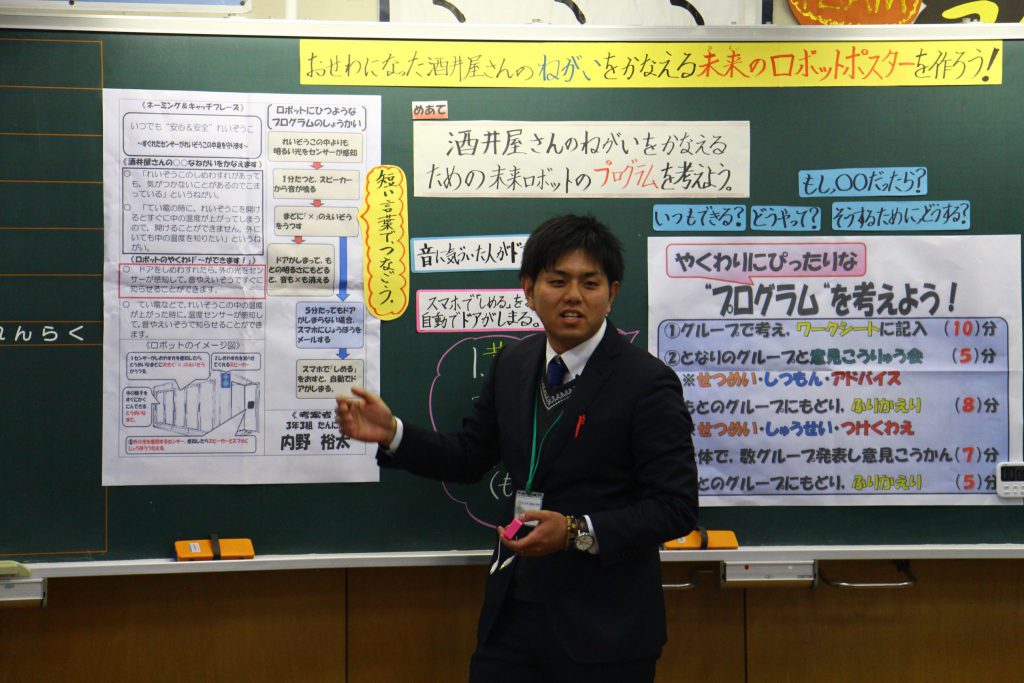 TEAM
おせわになった酒井屋さんのねがいをかなえる未来のロボットポスターを作ろう!
れんらく
〈ネーミング&キャッチフレーズ〉
いつでも“安心&安全”れいぞうこ
~すぐれたセンサーがれいぞうこの中身を守ります~
〈酒井屋さんの〇〇なねがいをかなえます〉
○ 「れいぞうこのしめわすれがあっても、気がつかないことがあるのでこまっている」というねがい。
○ 「てい電の時に、れいぞうこを開けるとすぐに中の温度が上がってしまうので、開けることができません。外にいても中の温度を知りたい」というねがい。
〈ロボットのやくわり「~ができます!」〉
○ ドアをしめわすれたら、外の光をセンサーが感知して、音やえいぞうですぐに知らせることができます。
○ てい電などで、れいぞうこの中の温度が上がった時に、温度センサーが感知して、音やえいぞうで知らせることができます。
〈ロボットのイメージ図〉
ロボットにひつような
プログラムのしょうかい
れいぞうこの中よりも
明るい光をセンサーが感知
1分たつと、スピーカーから音が鳴る
まどに「×」のえいぞうをうつす
ドアがしまって、もとの明るさにもどると、音も×も消える
5分たってもドアがしまらない場合、スマホにじょうほうをメールする
スマホで「しめる」をおすと、自動でドアがしまる。
〈考案者〉
3年3組 たんに
内野 裕太
短い言葉でつなごう。
めあて
酒井屋さんのねがいをかなえる
ための未来ロボットのプログラムを考えよう。
音に気づいた人がド
スマホで「しめる」を
自動でドアがしまる。
もし、〇〇だったら?
いつもできる?
どうやって?
そうするためにどうする?
やくわりにぴったりな
“プログラム”を考えよう!
①グループで考え、ワークシートに記入 (10)分
②となりのグループと意見こうりゅう会 (5)分
※せつめい・しつもん・アドバイス
もとのグループにもどり、ふりかえり (8)分
せつめい・しゅうせい・つけくわえ
体で、数グループ発表し意見こうかん (7)分
とのグループにもどり、ふりかえり (5)分